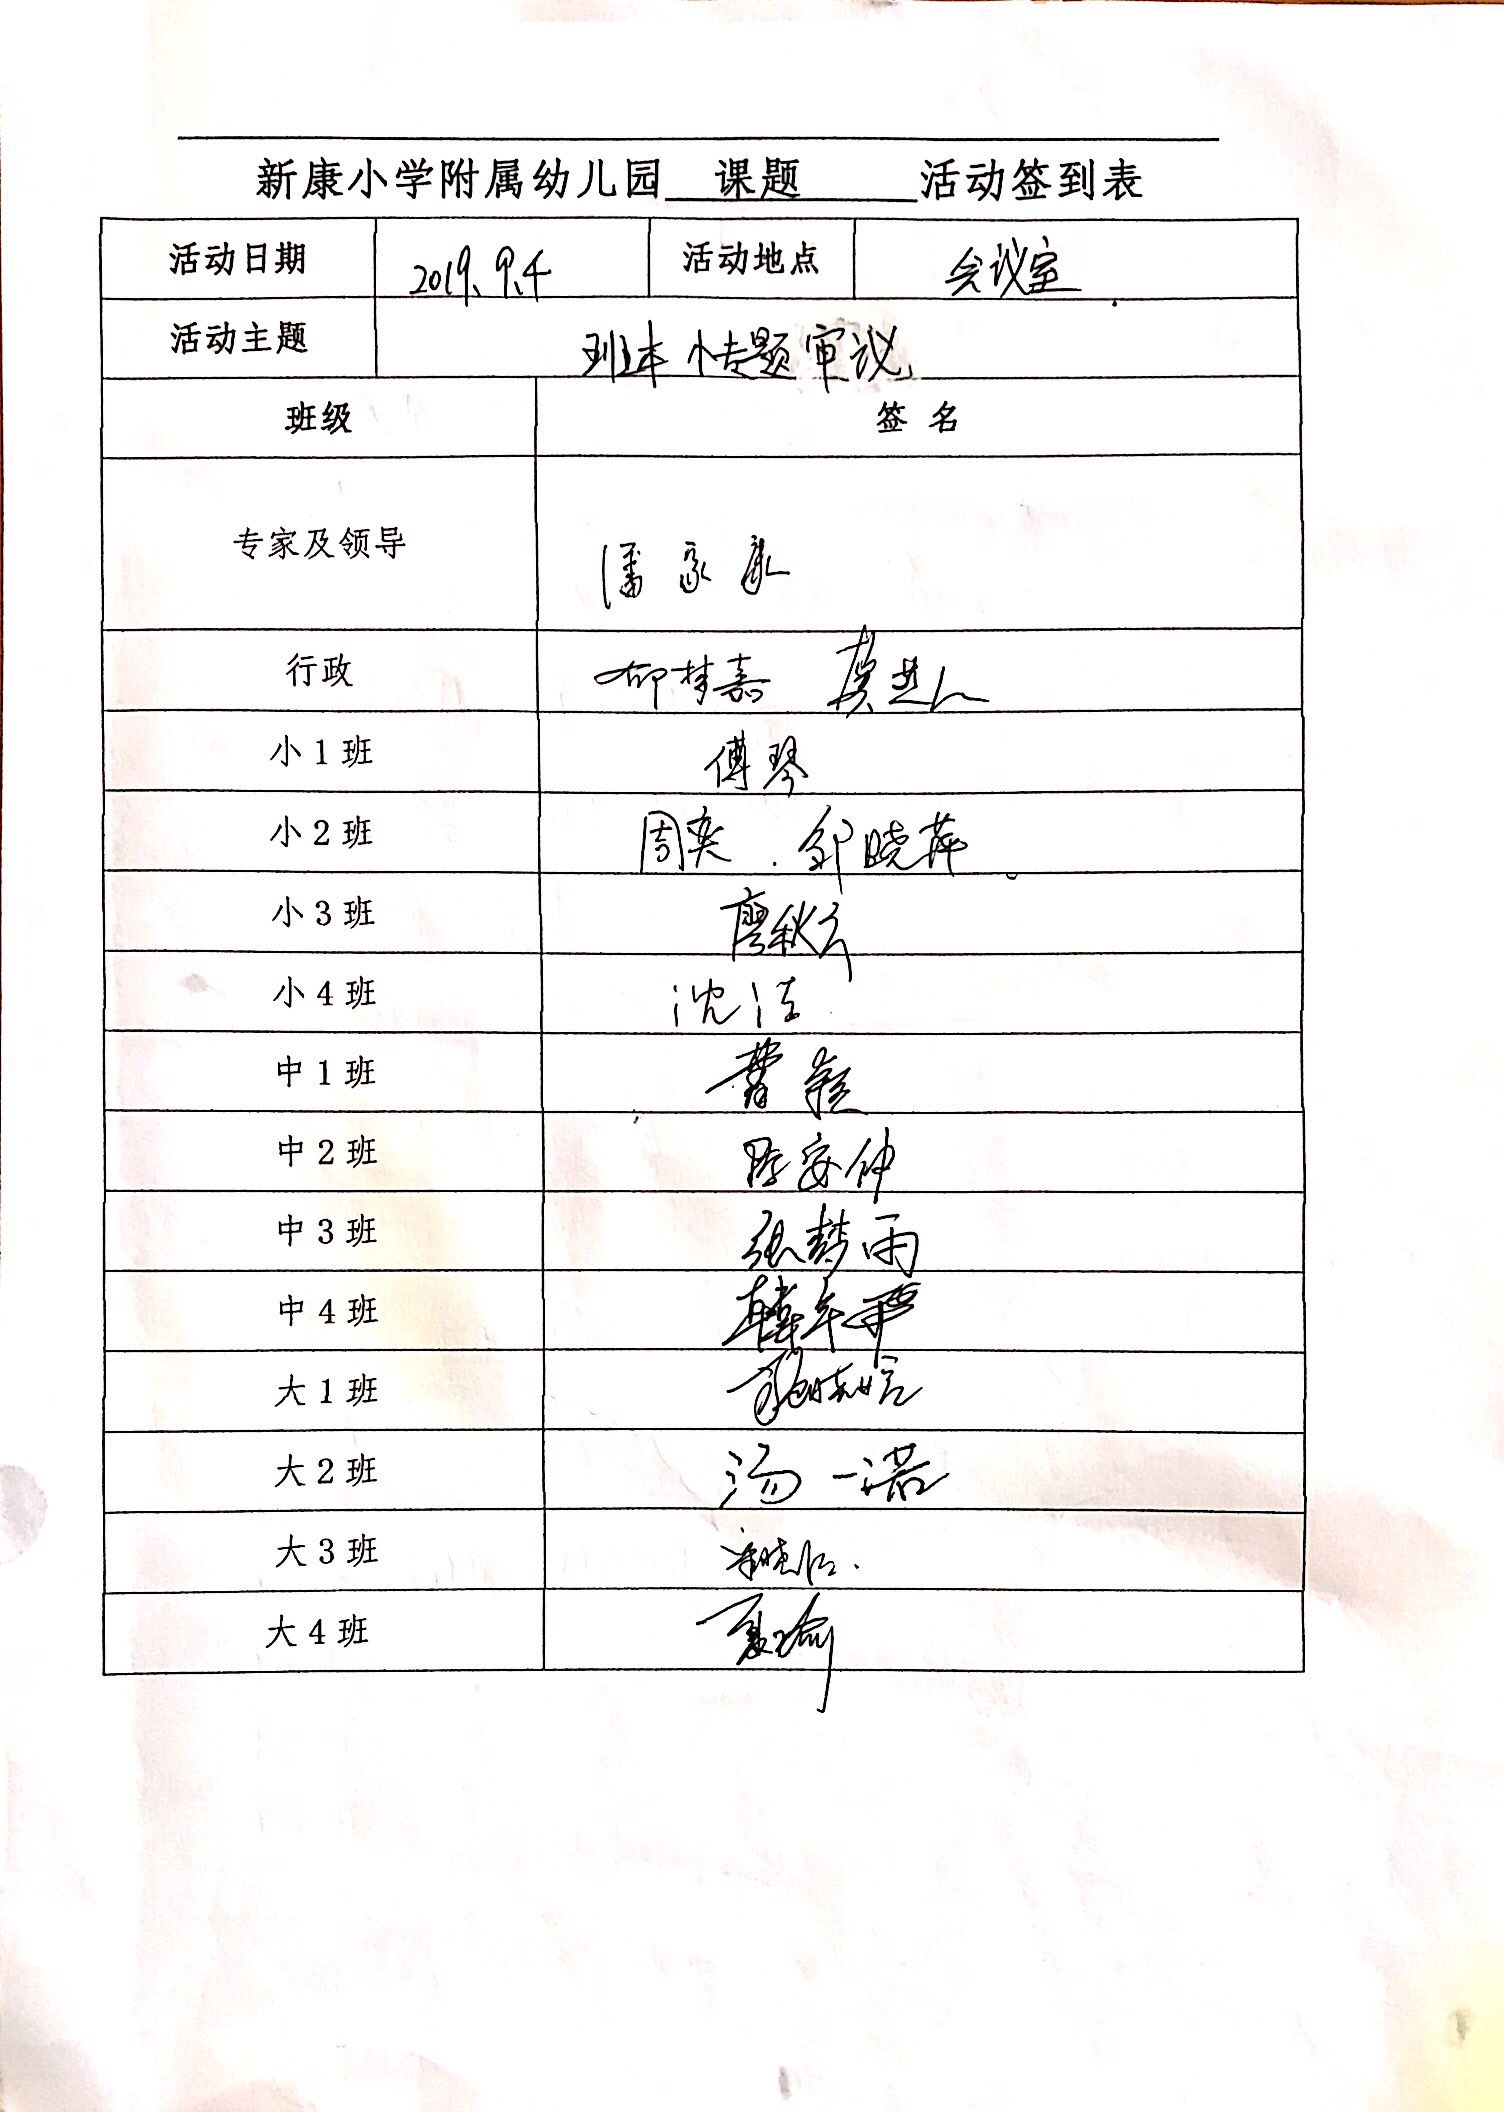 新康小学附属幼儿园 课题 活动签到表
活动日期 2019.9.4 活动地点 会议室
活动主题 班本小专题审议
班级 签 名
专家及领导 潘
行政 郁梦嘉
小1班 傅琴
小2班 周奕 . 邹晓萍
小3班 廖秋云
小4班 沈洁
中1班 曹颖
中2班 陈安仲
中3班 张梦雨
中4班
大1班
大2班 汤一诺
大3班
大4班 夏瑜